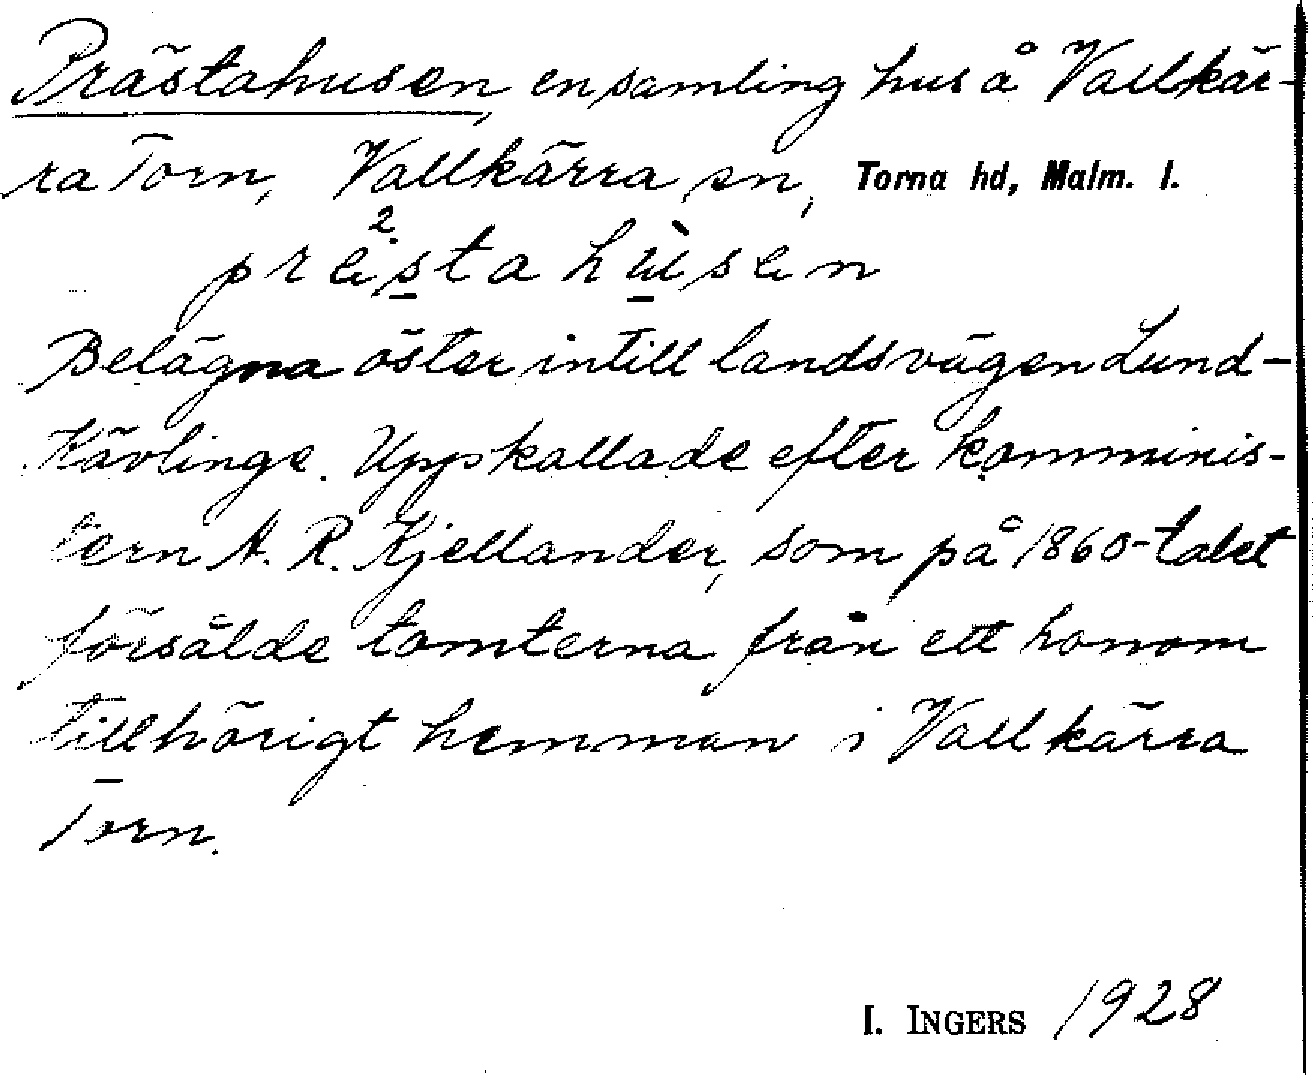 Prästahusen, en samling hus å Vallkär-
ra Torn, Vallkärra sn, Torna hd, Malm. l.
prästahùsen
Belägna öster intill landsvägen Lund-
Kävlinge. Uppkallade efter komminis-
tern A. R. Kjellander, som på 1860-talet
försålde tomterna från ett honom
tillhörigt hemman i Vallkärra
Torn.
I. INGERS 1928